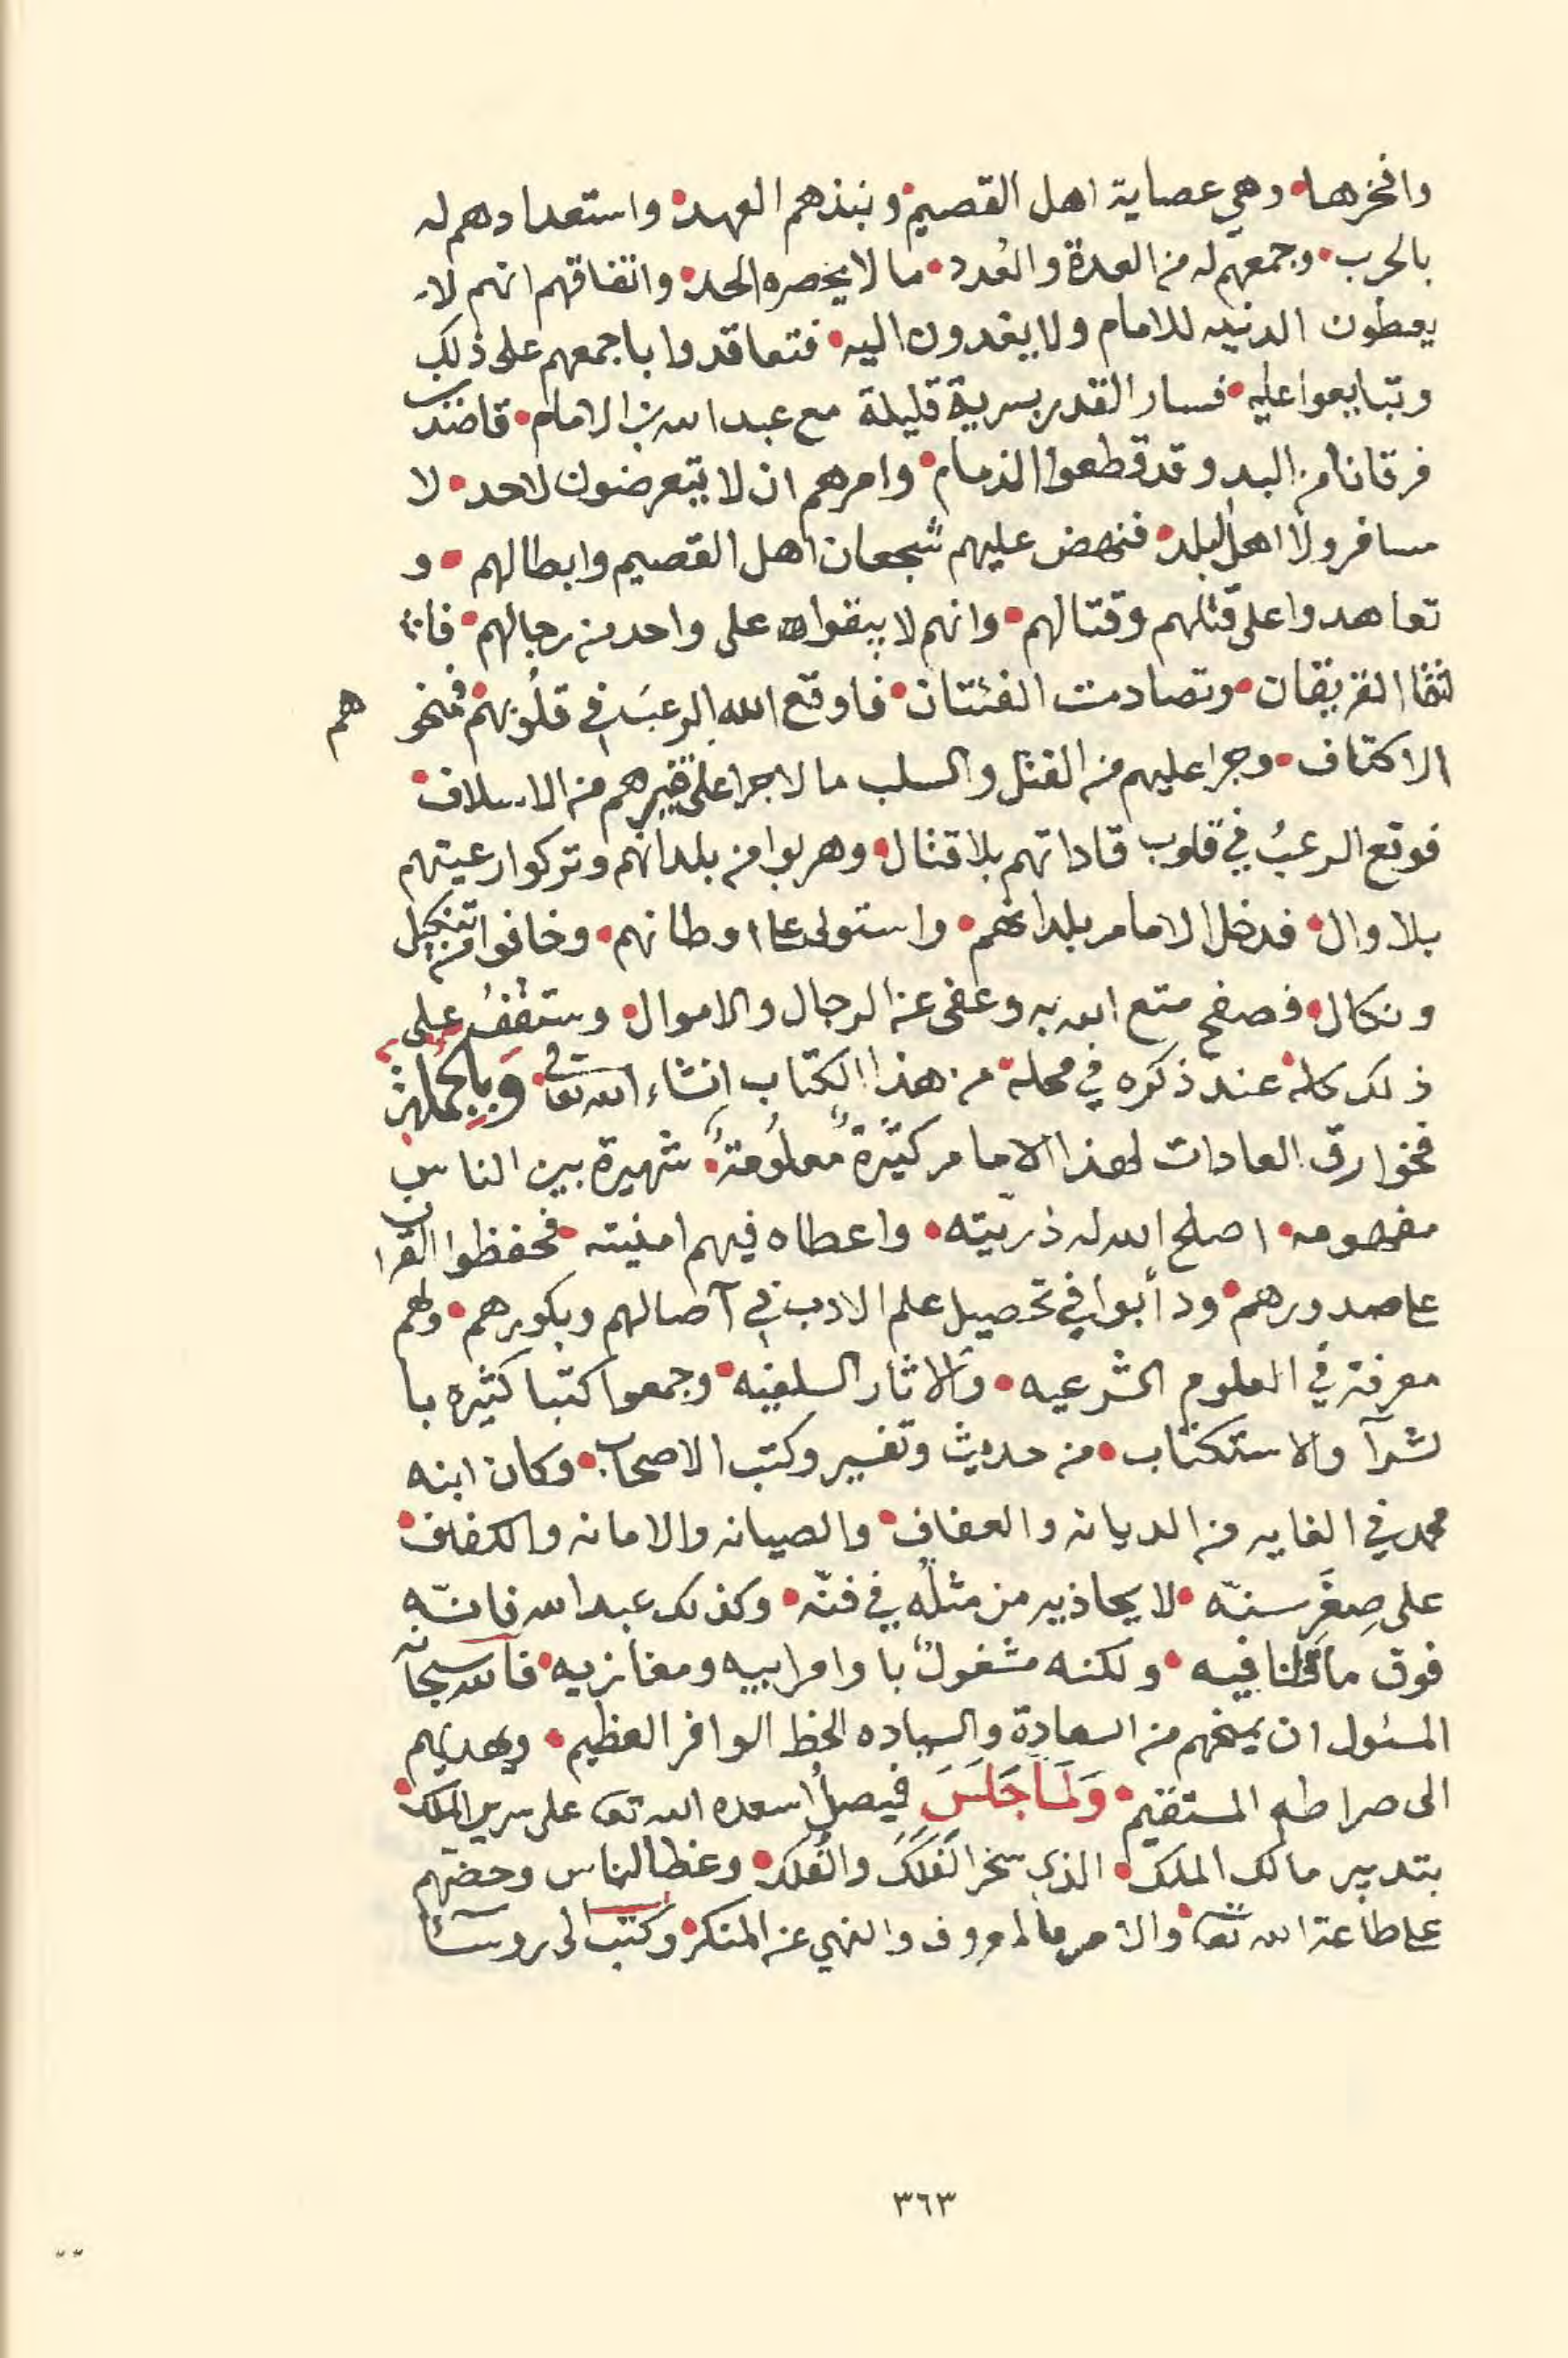 وافخرها • وهي عصاية اهل القصيم • ونبذهم العهد • واستعدادهم له
بالحرب • وجمعهم له من العدة والعُدد • ما لا يحصره الحد • واتفاقهم انهم لا
يعطون الدنيه للامام ولا يفدون اليه • فتعاقدوا باجمعهم على ذلك
وتبايعوا عليه • فسار القدر بسرية قليلة مع عبد الله بن الامام • قاضب
فرقانا من البدو قد قطعوا الذمام • وامرهم ان لا يتعرضون لاحد • لا
مسافر ولا اهل البلد • فنهض عليهم شجعان اهل القصيم وابطالهم • و
تعاهدوا على قتلهم وقتالهم • وانهم لا يبقوا على واحد من رجالهم • فا
لتقا الفريقان • وتصادمت الفئتان • فاوقع الله الرعبَ في قلُوبهم • فمنحو هم
الاكتاف • وجرا عليهم من القتل والسلب ما لا جرا على غيرهم من الاسلاف •
فوقع الرعبُ في قلوب قاداتهم بلا قتال • وهربوا من بلدانهم وتركوا رعيتهم
بلا وال • فدخل الامام بلدانهم • واستولى عا اوطانهم • وخافوا من تنكيل
ونكال • فصفح متع الله به وعفى عن الرجال والاموال • وستقفُ على
ذلك كله • عند ذكره في محله • من هذا الكتاب انشاء الله تعا • وَبِالجُملةِ
فخوارق العادات لهذا الامام كثيرةٌ معلُومةٌ • شهيرة بين الناس
مفهومه • اصلح الله له ذريّته • واعطاه فيهم امنيته • فحفظوا القران
عا صدورهم • ودأبوا في تحصيل علم الادب في آصالهم وبكورهم • ولهم
معرفة في العلوم الشرعيه • والاثار السلفيه • وجمعوا كتبا كثيره با
لشرآ والاستكتاب • من حديث وتفسير وكتب الاصحاب • وكان ابنه
محمد في الغايه من الديانه والعفاف • والصيانه والامانه والكفاف •
على صِغَرِ سنّه • لا يحاذيه من مثلُه في فنّه • وكذلك عبد الله فانّه
فوق ما قلنا فيه • ولكنه مشغولٌ باوامر ابيه ومغازيه • فالله سبحانه
المسئول ان يمنحهم من السعادة والسياده الحظ الوافر العظيم • ويهديهم
الى صراطه المستقيم • وَلمَّا جَلَسَ فيصلُ اسعده الله تعا على سرير الملك •
بتدبير مالك الملك • الذي سخر الفَلَكَ والفُلك • وعظ الناس وحضهم
عا طاعة الله تعا • والامر بالمعروف والنهي عن المنكر • وكتب الى روسآء
٣٦٣